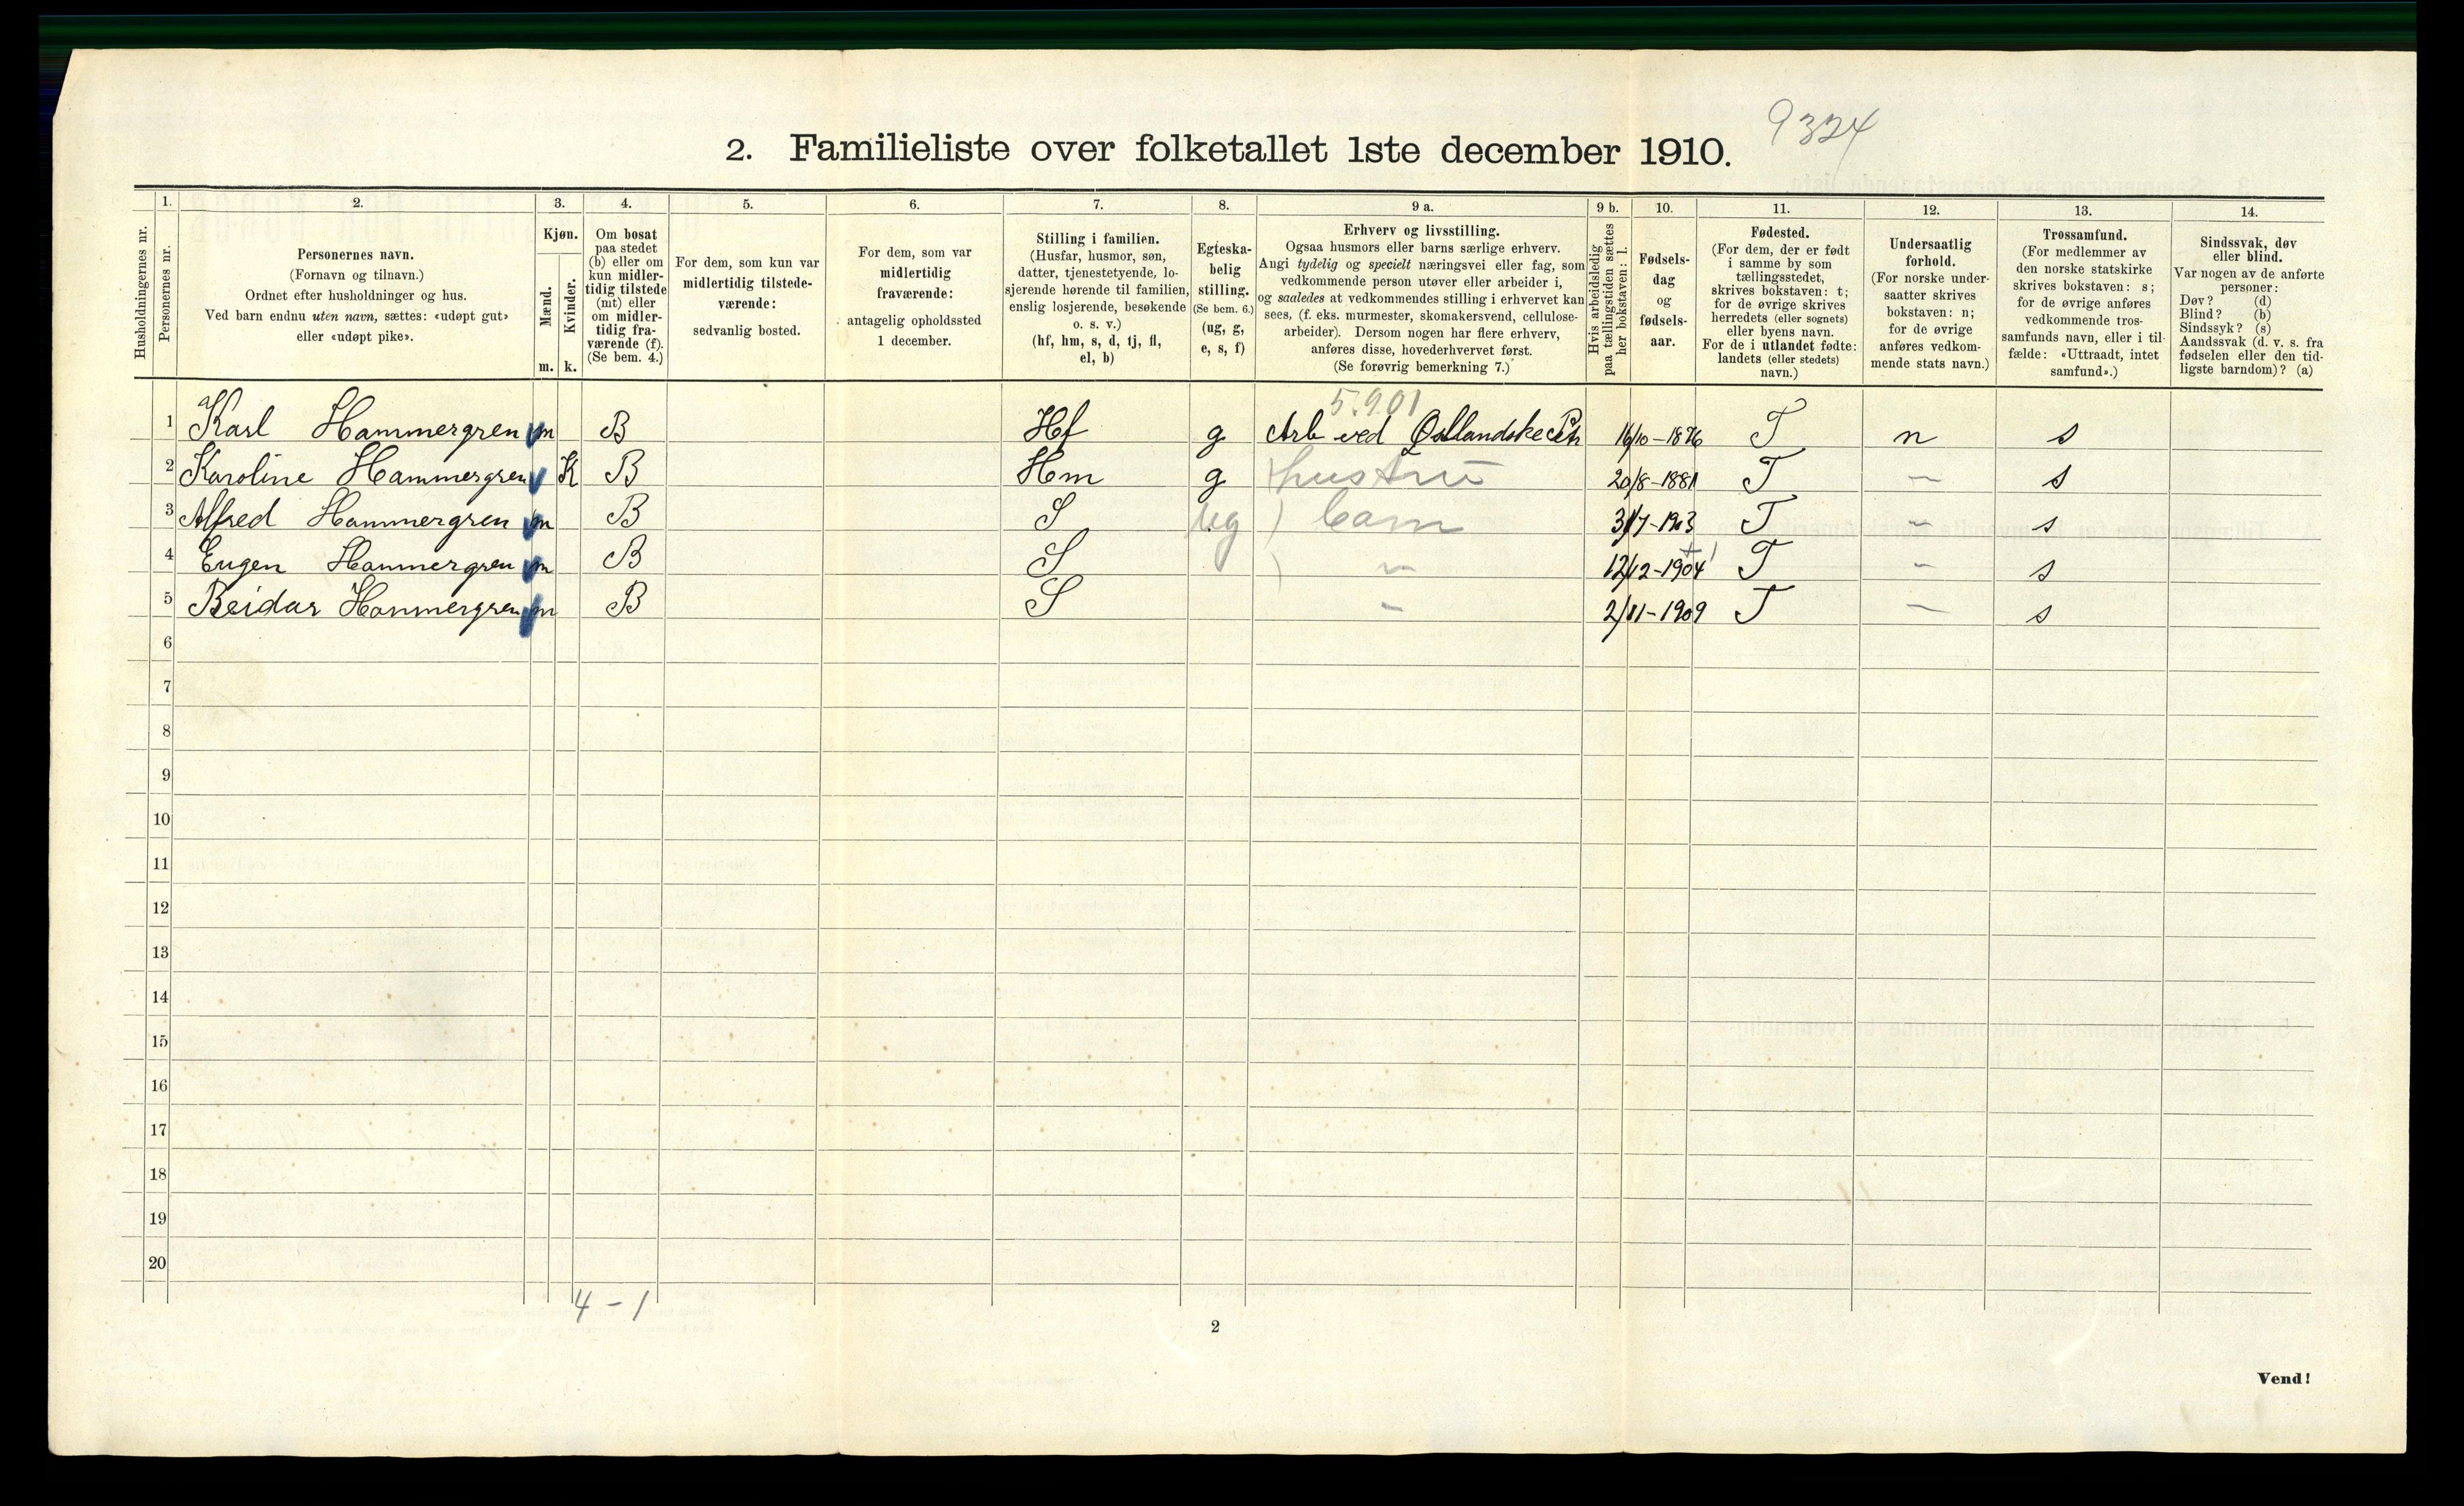 9324
2. Familieliste over folketallet 1ste december 1910.
Husholdningernes nr.
1. Personernes nr.
2. Personernes navn.
(Fornavn og tilnavn.)
Ordnet efter husholdninger og hus.
Ved barn endnu uten navn, sættes: «udøpt gut»
eller «udøpt pike».
3. Kjøn.
Mænd. m.
Kvinder. k.
4. Om bosat
paa stedet
(b) eller om
kun midler-
tidig tilstede
(mt) eller
om midler-
tidig fra-
værende (f).
(Se bem. 4.)
5. For dem, som kun var
midlertidig tilstede-
værende:
sedvanlig bosted.
6. For dem, som var
midlertidig
fraværende:
antagelig opholdssted
1 december.
7. Stilling i familien.
(Husfar, husmor, søn,
datter, tjenestetyende, lo-
sjerende hørende til familien,
enslig losjerende, besøkende
o. s. v.)
(hf, hm, s, d, tj, fl,
el, b)
8. Egteska-
belig
stilling.
(Se bem. 6.)
(ug, g,
e, s, f)
9 a. Erhverv og livsstilling.
Ogsaa husmors eller barns særlige erhverv.
Angi tydelig og specielt næringsvei eller fag, som
vedkommende person utøver eller arbeider i,
og saaledes at vedkommendes stilling i erhvervet kan
sees, (f. eks. murmester, skomakersvend, cellulose-
arbeider). Dersom nogen har flere erhverv,
anføres disse, hovederhvervet først.
(Se forøvrig bemerkning 7.)
9 b. Hvis arbeidsledig
paa tællingstiden sættes
her bokstaven: l.
10. Fødsels-
dag
og
fødsels-
aar.
11. Fødested.
(For dem, der er født
i samme by som
tællingsstedet,
skrives bokstaven: t;
for de øvrige skrives
herredets (eller sognets)
eller byens navn.
For de i utlandet fødte:
landets (eller stedets)
navn.)
12. Undersaatlig
forhold.
(For norske under-
saatter skrives
bokstaven: n;
for de øvrige
anføres vedkom-
mende stats navn.)
13. Trossamfund.
(For medlemmer av
den norske statskirke
skrives bokstaven: s;
for de øvrige anføres
vedkommende tros-
samfunds navn, eller i til-
fælde: «Uttraadt, intet
samfund».)
14. Sindssvak, døv
eller blind.
Var nogen av de anførte
personer:
Døv? (d)
Blind? (b)
Sindssyk? (s)
Aandssvak (d. v. s. fra
fødselen eller den tid-
ligste barndom)? (a)
5.9.01
1 Karl Hammergren m B Hf g Arb ved Østlandske 16/10-1876 T n s
2 Karoline Hammergren K B Hm g hustru 20/8-1881 T - s
3 Alfred Hammergren m B S ug barn 31/7-1903 T - s
4 Eugen Hammergren m B S - 12/12-1904 T - s
5 Reidar Hammergren m B S - 2/11-1909 T - s
6
7
8
9
10
11
12
13
14
15
16
17
18
19
20
4 - 1
2
Vend!